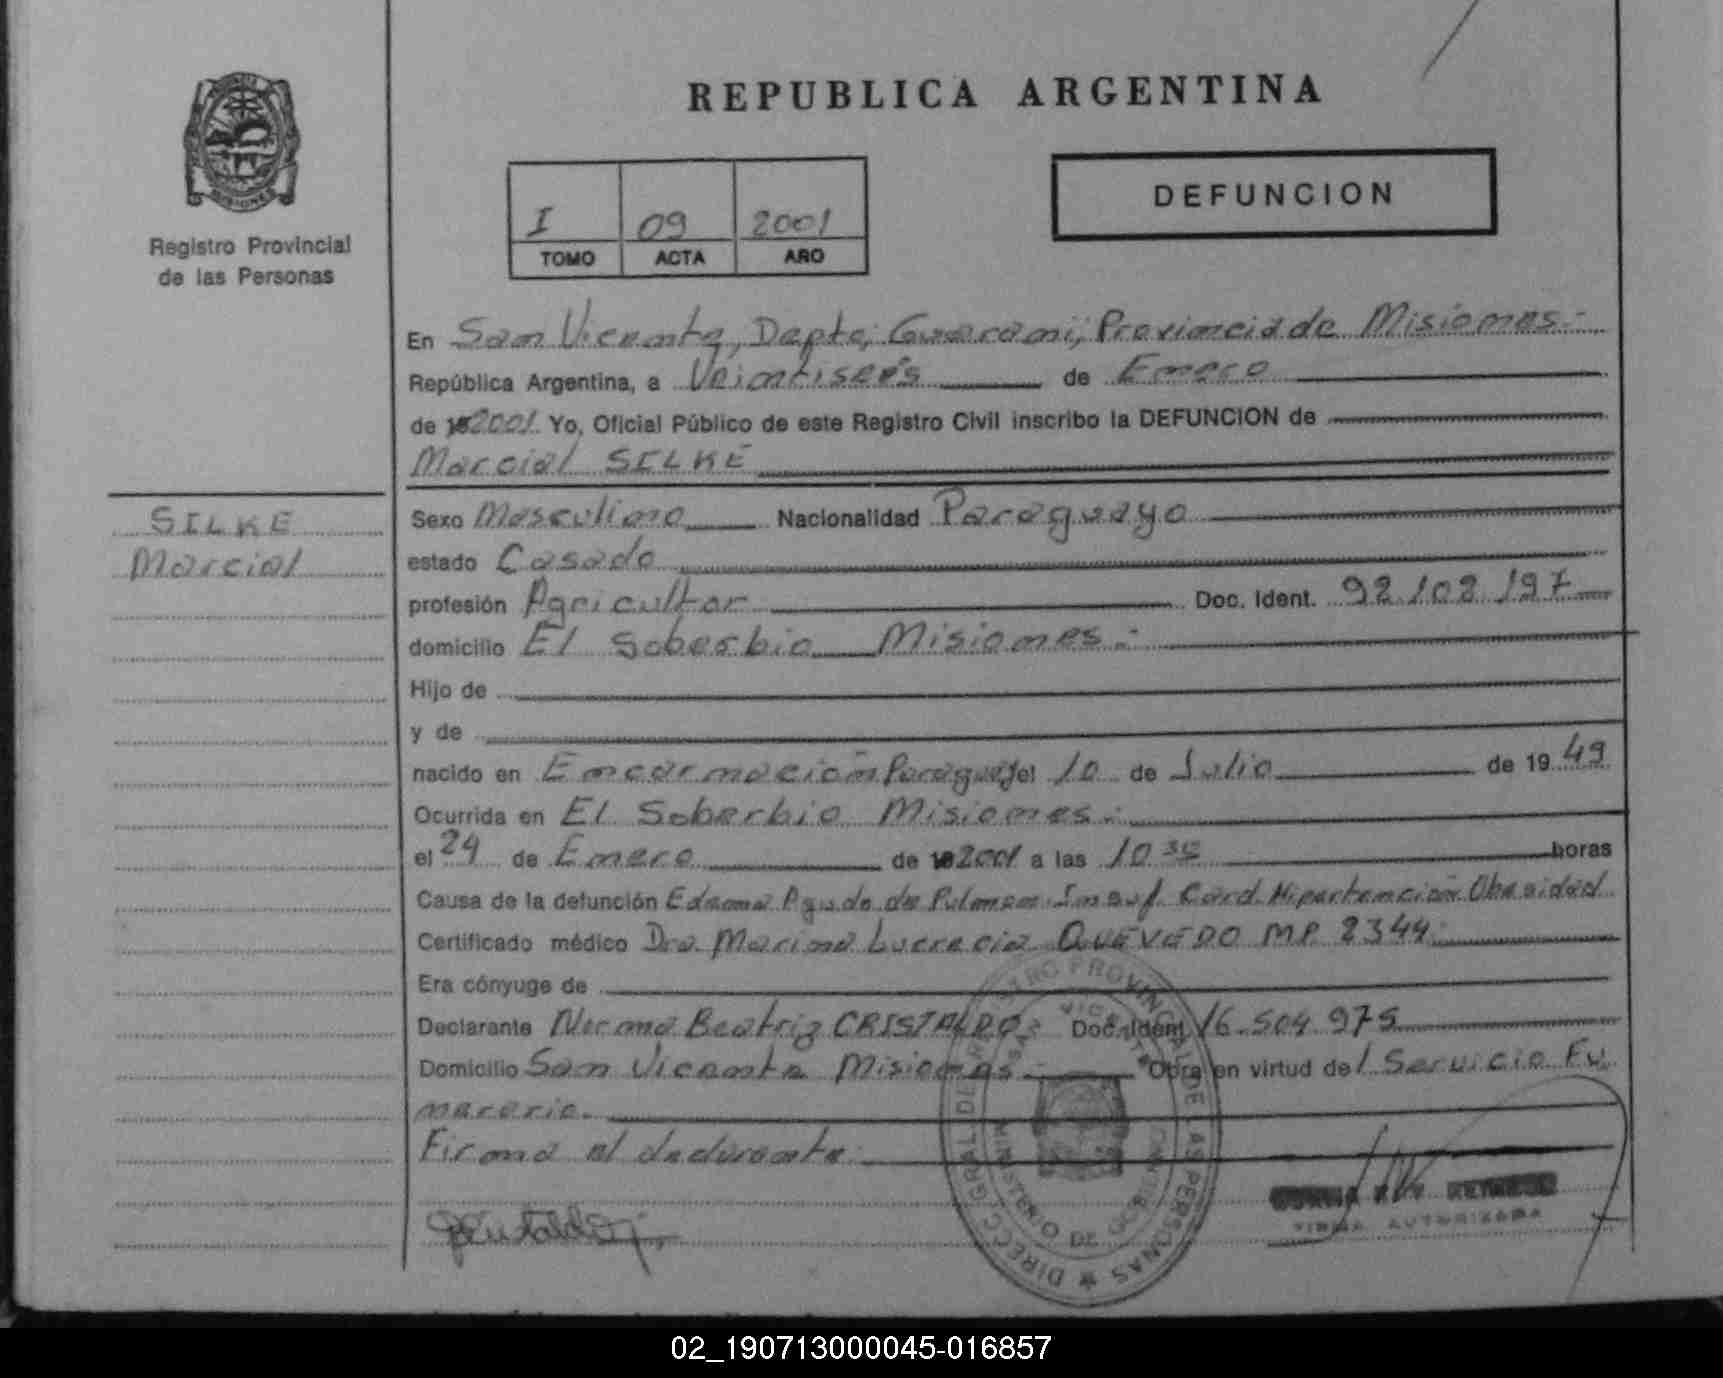 REPUBLICA ARGENTINA
DEFUNCION
I 09 2001
TOMO ACTA AÑO
Registro Provincial
de las Personas
En San Vicente, Depto, Guarani, Provincia de Misiones.-
República Argentina, a Veintiseis de Enero
de 2001. Yo, Oficial Público de este Registro Civil inscribo la DEFUNCION de
Marcial SILKE
SILKE
Marcial
Sexo Masculino Nacionalidad Paraguayo
estado Casado
profesión Agricultor Doc. Ident. 92.102.197
domicilio El Soberbio Misiones.-
Hijo de
y de
nacido en Encarnación Paraguay el 10 de Julio de 19 49
Ocurrida en El Soberbio Misiones.-
el 24 de Enero de 2001 a las 10 30 horas
Causa de la defunción Edema Agudo de Pulmon. Insuf. Card. Hipertencion Obesidad
Certificado médico Dra Marina Lucrecia QUEVEDO M.P. 2344.
Era cónyuge de
Declarante Norma Beatriz CRISTALDO Doc. Ident. 16.504.975
Domicilio San Vicente Misiones.- Obra en virtud del Servicio Fu
nerario.
Firma el declarante.
DIRECC. GRAL. DE REGISTRO PROVINCIAL DE LAS PERSONAS
SAN VICENTE
FIRMA AUTORIZADA
02_190713000045-016857